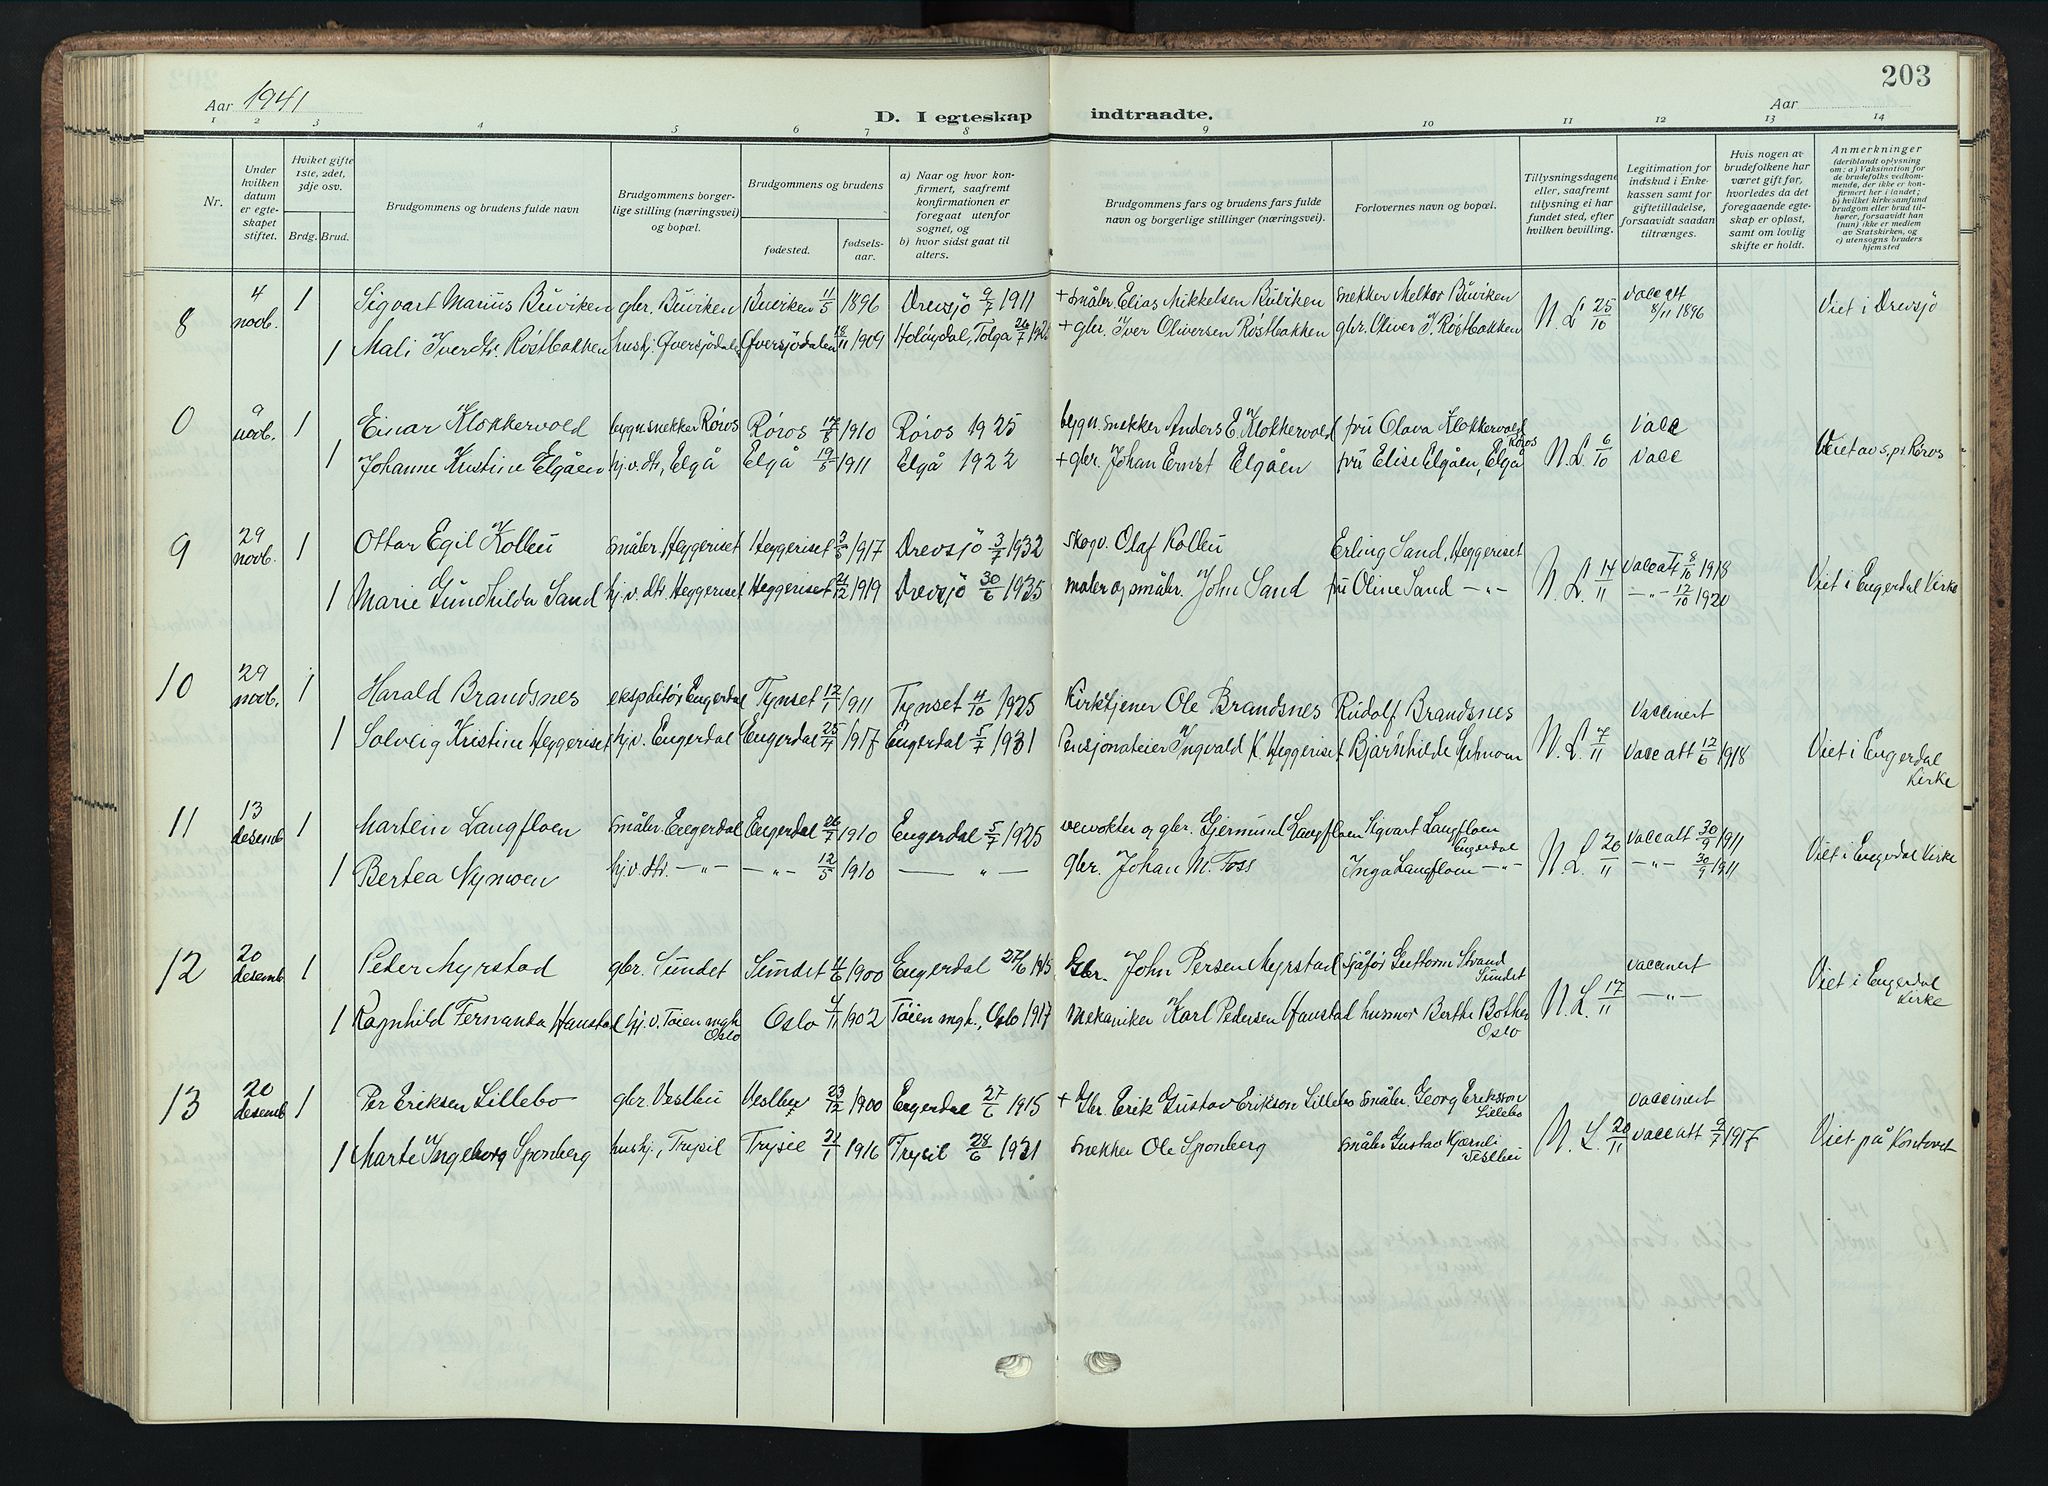 203
Aar 1941
D. I egteskap indtraadte.
Aar
1 2 3 4 5 6 7 8 9 10 11 12 13 14
Nr.
Under hvilken datum er egteskapet stiftet.
Hviket gifte 1ste, 2det, 3dje osv.
Brdg. Brud.
Brudgommens og brudens fulde navn
Brudgommens borgerlige stilling (næringsvei) og bopæl.
Brudgommens og brudens
fødested.
fødselsaar.
a) Naar og hvor konfirmert, saafremt konfirmationen er foregaat utenfor sognet, og
b) hvor sidst gaat til alters.
Brudgommens fars og brudens fars fulde navn og borgerlige stillinger (næringsvei).
Forlovernes navn og bopæl.
Tillysningsdagene eller, saafremt tillysning ei har fundet sted, efter hvilken bevilling.
Legitimation for indskud i Enkekassen samt for giftetilladelse, forsaavidt saadan tiltrænges.
Hvis nogen av brudefolkene har været gift før, hvorledes da det foregaaende egteskap er opløst, samt om lovlig skifte er holdt.
Anmerkninger
(deriblandt oplysning om: a) Vaksination for de brudefolks vedkommende, der ikke er konfirmert her i landet; b) hvilket kirkesamfund brudgom eller brud tilhører, forsaavidt han (hun) ikke er medlem av Statskirken, og c) utensogns bruders hjemsted
8 4 novb. 1 Sigvart Marius Buviken gbr. Buviken Buviken 11/5 1896 Drevsjö 9/7 1911 + småbr Elias Mikkelsen Buviken snekker Melkor Buviken N. L. 25/10 vacc att 8/11 1896 Viet i Drevsjö
1 Mali Iverdtr. Røstbakken hushj. Øversjödalen Øversjödalen 18/11 1909 Holöydal, Tolga 26/7 + gbr. Iver Oliversen Røstbakken gbr. Oliver I. Røstbakken
0 9 novb. 1 Einar Klokkervold bygn.snekker Røros Røros 17/8 1910 Røros 1925 bygn. snekker Anders E. Klokkervold fru Olava Klokkervold Røros N. L. 6/10 vacc Viet av s.pr. Røros
1 Johanne Kristine Elgåen hj.v. dtr, Elgå Elgå 19/5 1911 Elgå 1922 + gbr. Johan Ernst Elgåen fru Elise Elgåen, Elgå vacc
9 29 novb. 1 Ottar Egil Kolbu småbr Heggeriset Heggeriset 3/5 1917 Drevsjö 3/7 1932 skogv. Olaf Kolbu Erling Sand, Heggeriset N. L. 14/11 vacc att 8/10 1918 Viet i Engerdal Kirke
1 Marie Gundhilda Sand hj.v. dtr Heggeriset Heggeriset 21/12 1919 Drevsjö 30/6 1935 maler og småbr. John Sand fru Oline Sand -"- -"- 12/10 1920
10 29 novb. 1 Harald Brandsnes ekspeditør Engerdal Tynset 12/1 1911 Tynset 4/10 1925 Kirketjener Ole Brandsnes Rudolf Brandsnes N. L. 7/11 vaccinert
1 Solveig Kristine Heggeriset hj.v. Engerdal Engerdal 25/4 1917 Engerdal 5/7 1931 Pensjonateier Ingvald K. Heggeriset Bjarnhilde vacc att 12/6 1918 Viet i Engerdal Kirke
11 13 desemb 1 Martein Langfloen småbr. Engerdal Engerdal 26/7 1910 Engerdal 5/7 1925 veivokter og gbr. Gjermund Langfloen Sigvart Langfloen Engerdal N. L. 20/11 vacc att 30/9 1911 Viet i Engerdal Kirke
1 Bertea Nymoen hj.v. dtr. -"- -"- 12/5 1910 -"- gbr. Johan M. Foss Inga Langfloen -"- -"- 30/9 1911
12 20 desemb 1 Peder Myrstad gbr. Sundet Sundet 4/6 1900 Engerdal 27/6 1915 Gbr. John Persen Myrstad sjåfør Guttorm Strand Sundet N. L. 17/11 vaccinert Viet i Engerdal Kirke
1 Ragnhild Fernanda Haustad hj.v. Tøien mgh. Oslo Oslo 4/11 1902 Tøien mgh., Oslo 1917 mekaniker Karl Pedersen Haustad husmor Berthe Bothen Oslo -"-
13 20 desemb 1 Per Eriksen Lillebo gbr. Vestbu Vestby 23/12 1900 Engerdal 27/6 1915 + Gbr. Erik Gustav Erikson Lillebo småbr. Georg Erikson Lillebo N. L. 20/11 vaccinert Viet på Kontoret
1 Marte Ingeborg Sponberg hushj., Trysil Trysil 21/1 1916 Trysil 28/6 1931 snekker Ole Sponberg småbr Gustav Kjernli Vestbu vacc att 9/7 1917